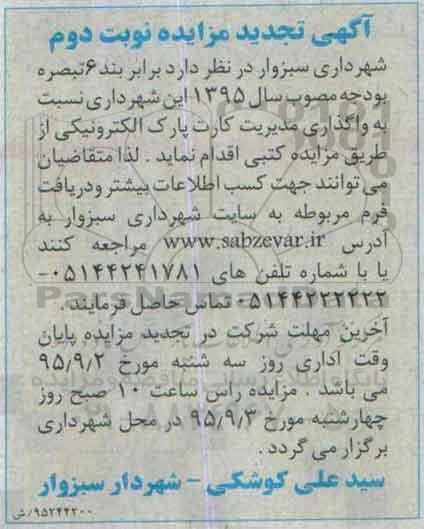 آگهی تجدید مزایده نوبت دوم
شهرداری سبزوار در نظر دارد برابر بند ۶ تبصره
بودجه مصوب سال ۱۳۹۵ این شهرداری نسبت
به واگذاری مدیریت کارت پارک الکترونیکی از
طریق مزایده کتبی اقدام نماید . لذا متقاضیان
می توانند جهت کسب اطلاعات بیشتر و دریافت
فرم مربوطه به سایت شهرداری سبزوار به
آدرس www.sabzevar.ir مراجعه کنند
یا با شماره تلفن های ۰۵۱۴۴۲۴۱۷۸۱-
۰۵۱۴۴۲۲۲۲۲۲ تماس حاصل فرمایند .
آخرین مهلت شرکت در تجدید مزایده پایان
وقت اداری روز سه شنبه مورخ ۹۵/۹/۲
می باشد . مزایده راس ساعت ۱۰ صبح روز
چهارشنبه مورخ ۹۵/۹/۳ در محل شهرداری
برگزار می گردد .
سید علی کوشکی - شهردار سبزوار
۹۵۲۴۴۲۰۰/ش